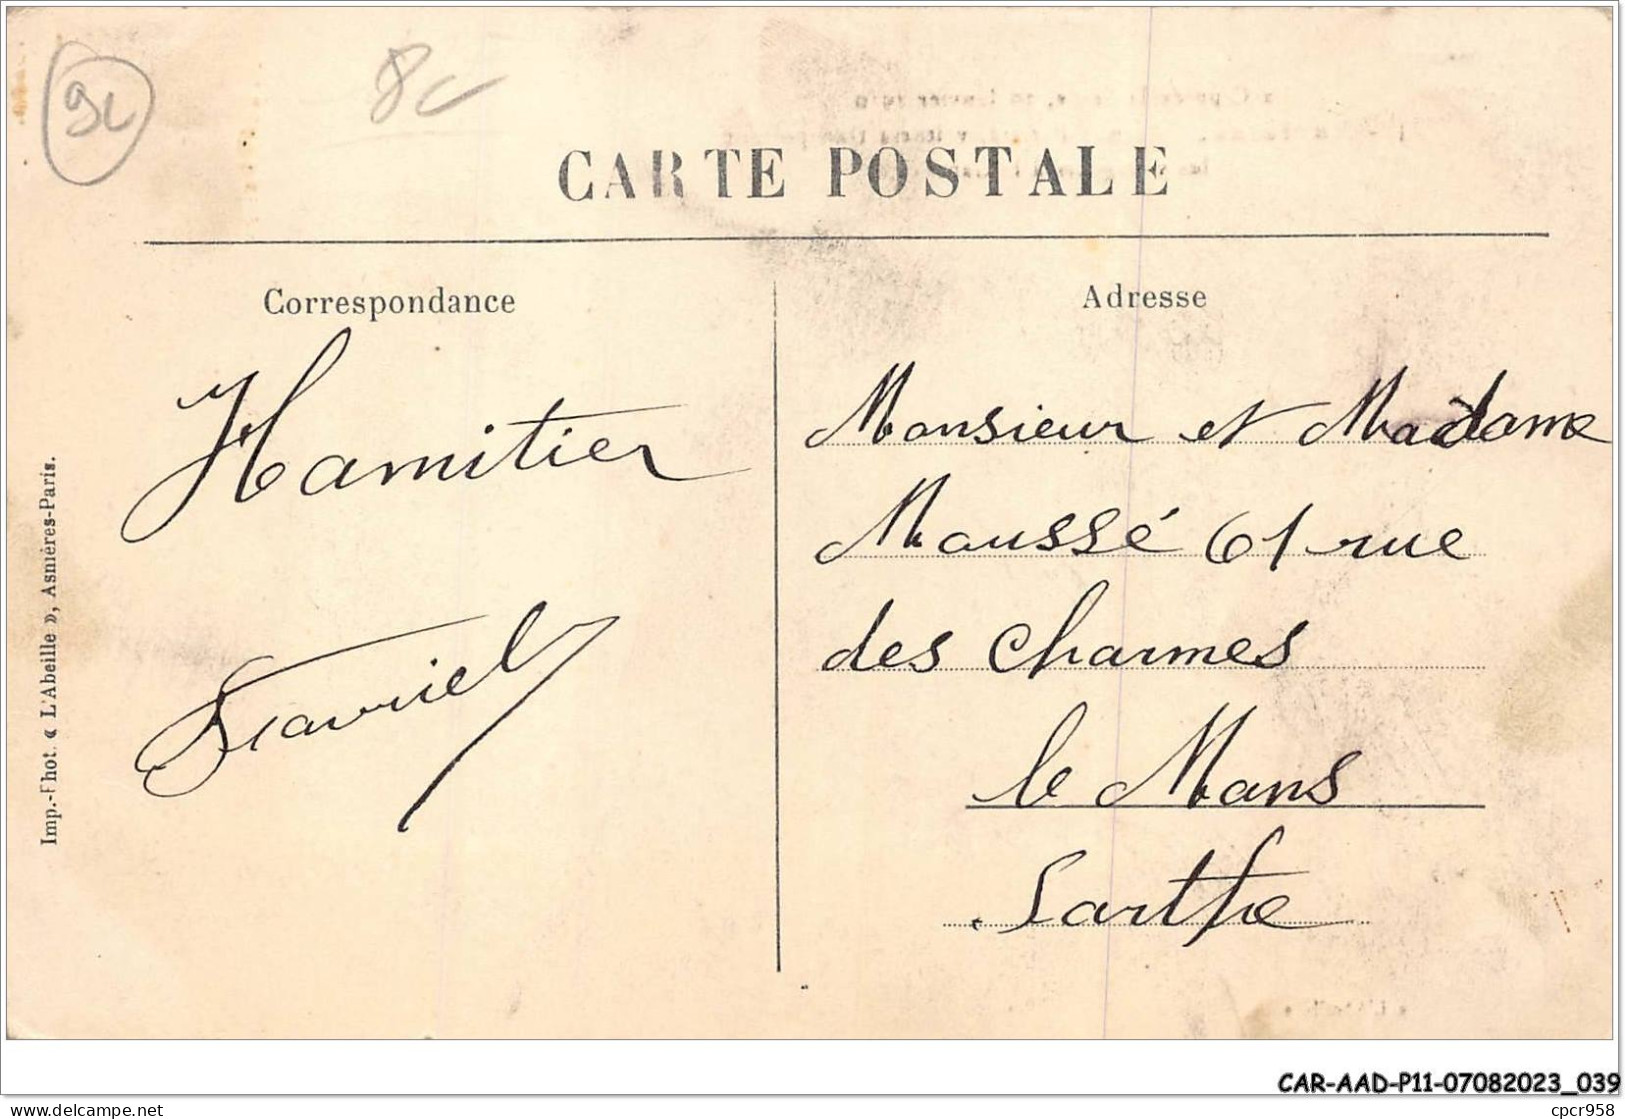 8c
CARTE POSTALE
Correspondance
Hamitier
Adresse
Monsieur et Madame
Maussé 61 rue
des Charmes
le Mans
Sarthe
Imp.-Phot. « L'Abeille », Asnières-Paris.
CAR-AAD-P11-07082023_039
delcampe.net
cpcr958